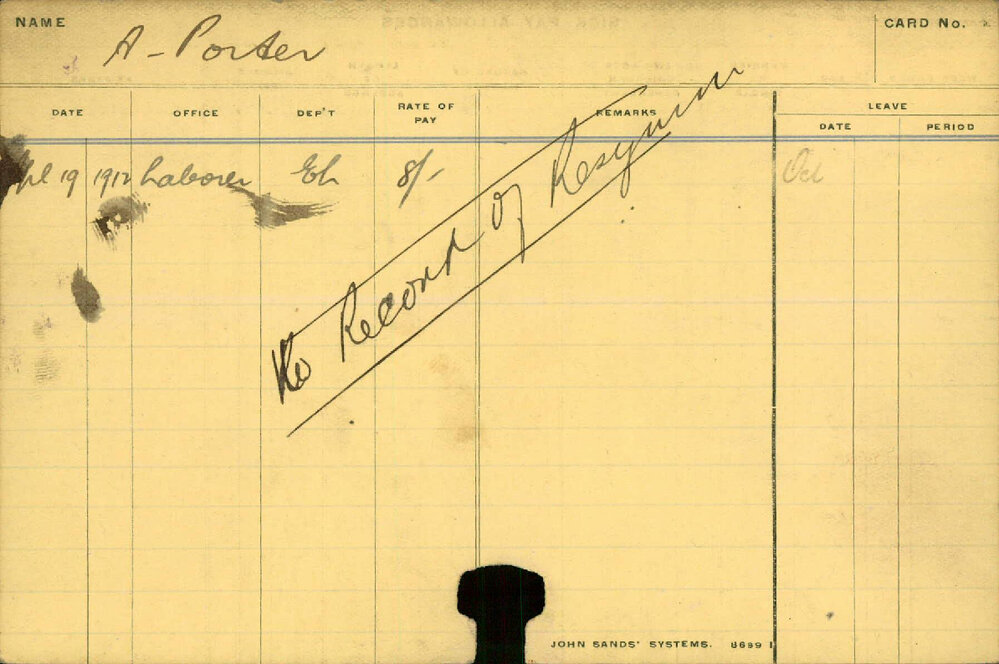 NAME
A - Porter
CARD No.
DATE
OFFICE
DEP'T
RATE OF PAY
REMARKS
LEAVE
DATE
PERIOD
19 1912 Laborer 8/-
No Record of
JOHN SANDS' SYSTEMS. 8699